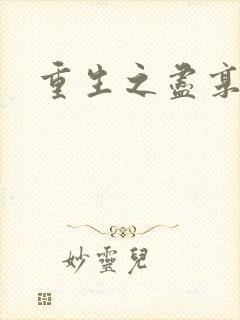 重生之盡
妙靈兒